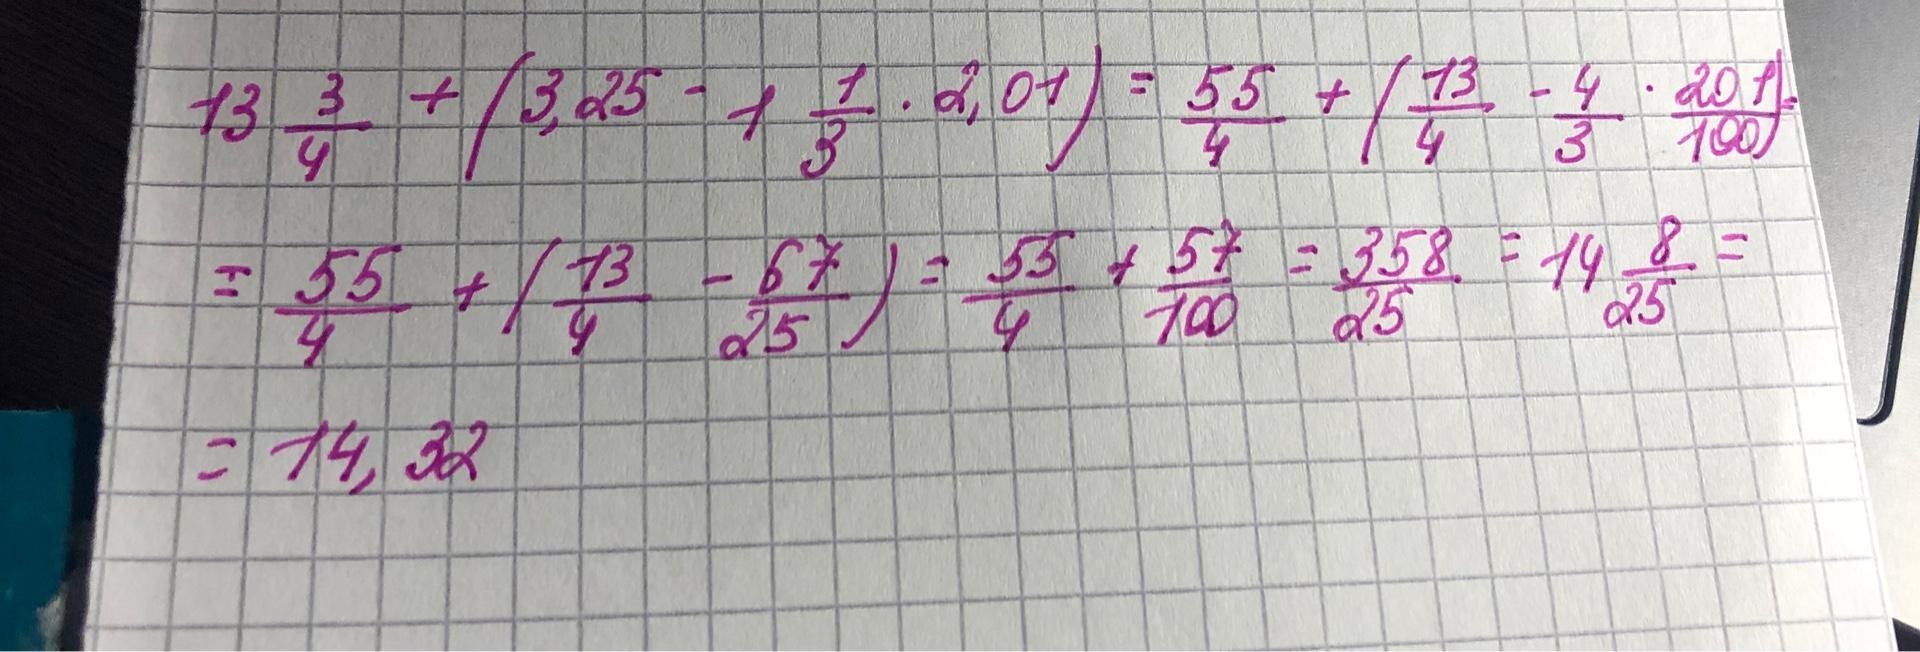 13 3/4 + (3,25 - 1 1/3 · 2,01) = 55/4 + (13/4 - 4/3 · 201/100) =
= 55/4 + (13/4 - 67/25) = 55/4 + 57/100 = 358/25 = 14 8/25 =
= 14,32